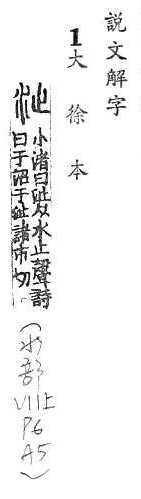 説文解字
1大徐本
沚
小渚曰沚从水止聲詩
曰于沼于沚諸市切
(水部
VIII上
P6
A5)